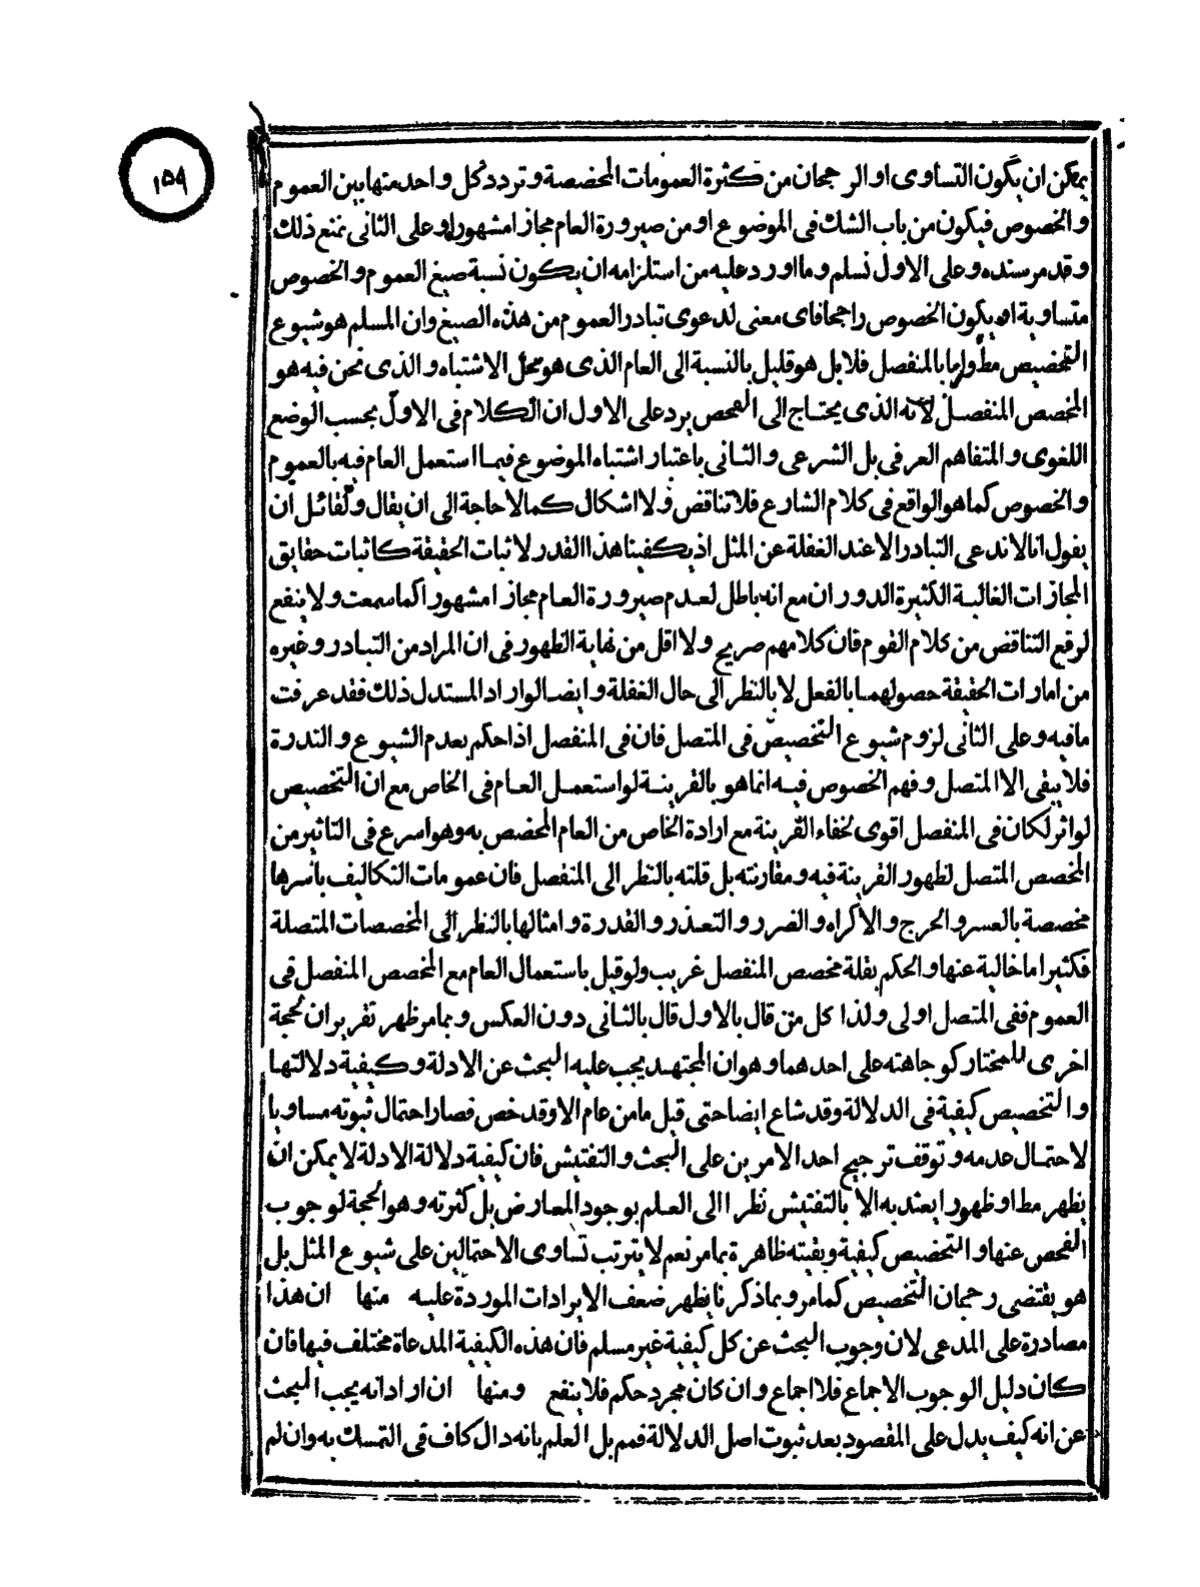 ١٥٩
يمكن ان يكون التساوى او الرجحان من كثرة العمومات المخصصة وتردد كل واحد منها بين العموم
والخصوص فيكون من باب الشك فى الموضوع او من صيرورة العام مجازا مشهورا وعلى الثانى نمنع ذلك
وقد مر سنده وعلى الاول نسلم وما اورد عليه من استلزامه ان يكون نسبة صيغ العموم والخصوص
متساوية او يكون الخصوص راجحا فاى معنى لدعوى تبادر العموم من هذه الصيغ وان المسلم هو شيوع
التخصيص مط واما بالمنفصل فلا بل هو قليل بالنسبة الى العام الذى هو محل الاشتباه والذى نحن فيه هو
المخصص المنفصل لانه الذى يحتاج الى الفحص يرد على الاول ان الكلام فى الاول بحسب الوضع
اللغوى والمتفاهم العرفى بل الشرعى والثانى باعتبار اشتباه الموضوع فيما استعمل العام فيه بالعموم
والخصوص كما هو الواقع فى كلام الشارع فلا تناقض ولا اشكال كما لا حاجة الى ان يقال ولقائل ان
يقول انا لا ندعى التبادر الا عند الغفلة عن المثل اذ يكفينا هذا القدر لاثبات الحقيقة كاثبات حقايق
المجازات الغالبة الكثيرة الدوران مع انه باطل لعدم صيرورة العام مجازا مشهورا كما سمعت ولا ينفع
لرفع التناقض من كلام القوم فان كلامهم صريح ولا اقل من نهاية الظهور فى ان المراد من التبادر وغيره
من امارات الحقيقة حصولهما بالفعل لا بالنظر الى حال الغفلة وايضا لو اراد المستدل ذلك فقد عرفت
ما فيه وعلى الثانى لزوم شيوع التخصيص فى المتصل فان فى المنفصل اذا حكم بعدم الشيوع والندرة
فلا يبقى الا المتصل وفهم الخصوص فيه انما هو بالقرينة لو استعمل العام فى الخاص مع ان التخصيص
لو اثر لكان فى المنفصل اقوى لخفاء القرينة مع ارادة الخاص من العام المخصص به وهو اسرع فى التاثير من
المخصص المتصل لظهور القرينة فيه ومقارنته بل قلته بالنظر الى المنفصل فان عمومات التكاليف باسرها
مخصصة بالعسر والحرج والاكراه والضرر والتعذر والقدرة وامثالها بالنظر الى المخصصات المتصلة
فكثيرا ما خالية عنها والحكم بقلة مخصص المنفصل غريب ولو قيل باستعمال العام مع المخصص المنفصل فى
العموم ففى المتصل اولى ولذا كل من قال بالاول قال بالثانى دون العكس وبما مر ظهر تقريران لحجة
اخرى للمختار كوجاهته على احدهما وهو ان المجتهد يجب عليه البحث عن الادلة وكيفية دلالتها
والتخصيص كيفية فى الدلالة وقد شاع ايضا حتى قيل ما من عام الا وقد خص فصار احتمال ثبوته مساويا
لاحتمال عدمه وتوقف ترجيح احد الامرين على البحث والتفتيش فان كيفية دلالة الادلة لا يمكن ان
يظهر مط او ظهورا يعتد به الا بالتفتيش نظرا الى العلم بوجود المعارض بل كثرته وهو الحجة لوجوب
الفحص عنها والتخصيص كيفية وبقيته ظاهرة بما مر نعم لا يترتب تساوى الاحتمالين على شيوع المثل بل
هو يقتضى رجحان التخصيص كما مر وبما ذكرنا يظهر ضعف الايرادات الموردة عليه منها ان هذا
مصادرة على المدعى لان وجوب البحث عن كل كيفية غير مسلم فان هذه الكيفية المدعاة مختلف فيها فان
كان دليل الوجوب الاجماع فلا اجماع وان كان مجرد حكم فلا ينفع ومنها ان اراد انه يجب البحث
عن انه كيف يدل على المقصود بعد ثبوت اصل الدلالة فمم بل العلم بانه دال كاف فى التمسك به وان لم